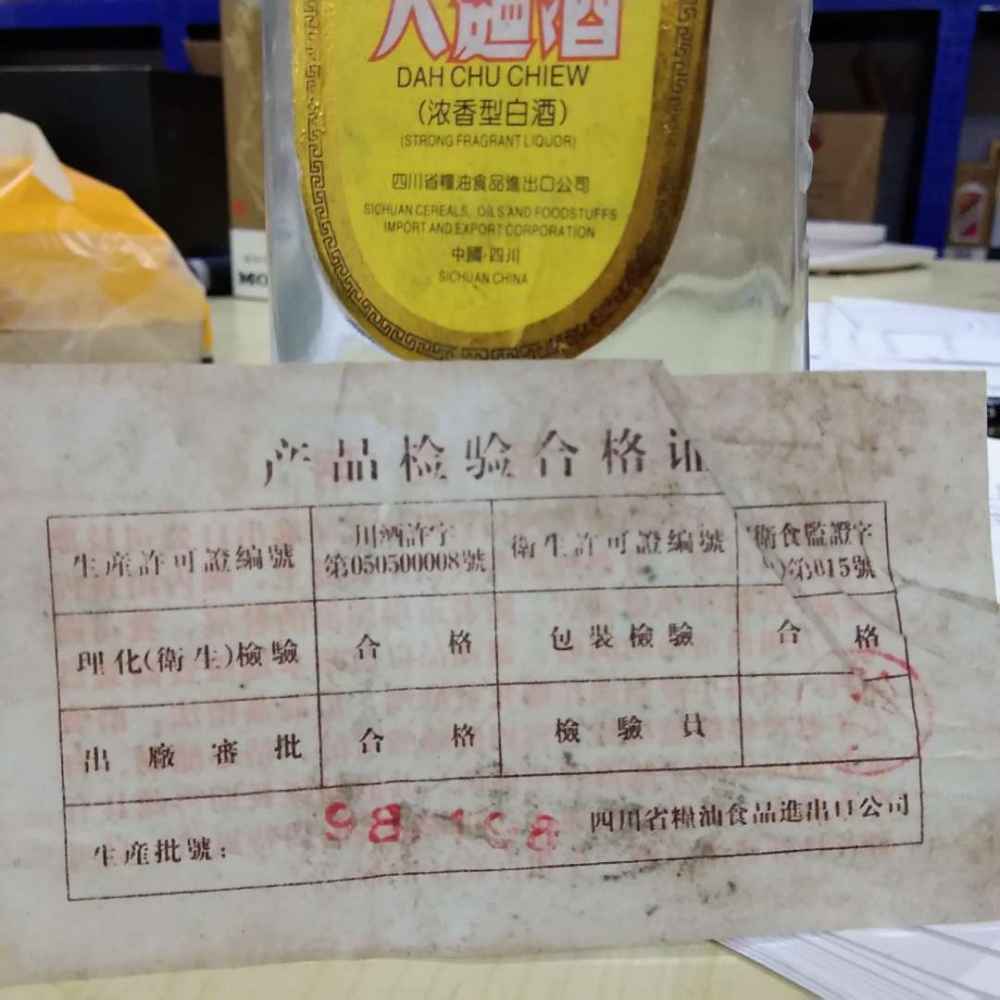 大麯酒
DAH CHU CHIEW
(浓香型白酒)
(STRONG FRAGRANT LIQUOR)
四川省糧油食品進出口公司
SICHUAN CEREALS, OILS AND FOODSTUFFS
IMPORT AND EXPORT CORPORATION
中國·四川
SICHUAN CHINA
MO
产品检验合格证
生産許可證编號
川酒許字
第050500008號
衛生許可證编號
衛食監證字
第015號
理化(衛生)檢驗
合格
包裝檢驗
合格
出廠審批
合格
檢驗員
生産批號:
98 108
四川省糧油食品進出口公司